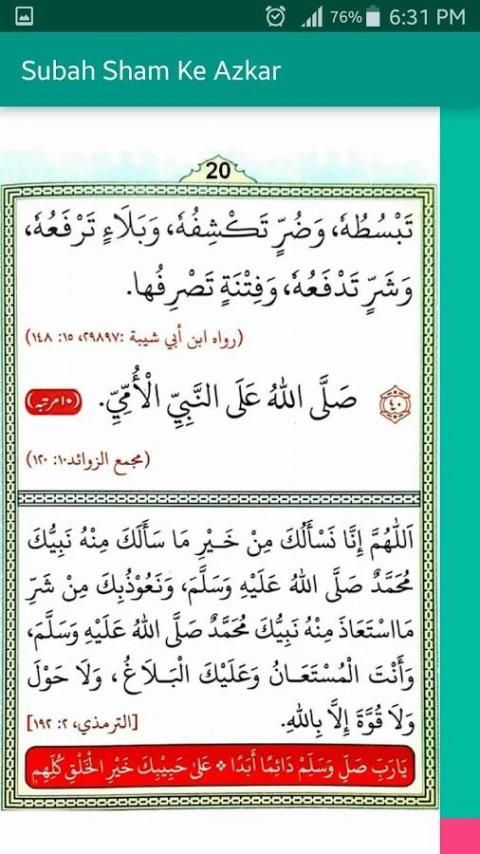 76% 6:31 PM
Subah Sham Ke Azkar
20
تَبْسُطُهٗ، وَضُرٍّ تَكْشِفُهٗ، وَبَلَاءٍ تَرْفَعُهٗ،
وَشَرٍّ تَدْفَعُهٗ، وَفِتْنَةٍ تَصْرِفُها.
(رواه ابن أبي شيبة :٢٩٨٩٧، ١٥: ١٤٨)
٤٠ صَلَّى اللهُ عَلَى النَّبِيِّ الْأُمِّيِّ. (١٠ مرتبہ)
(مجمع الزوائد١٠: ١٢٠)
اَللّٰهُمَّ إِنَّا نَسْأَلُكَ مِنْ خَيْرِ مَا سَأَلَكَ مِنْهُ نَبِيُّكَ
مُحَمَّدٌ صَلَّى اللهُ عَلَيْهِ وَسَلَّمَ، وَنَعُوْذُبِكَ مِنْ شَرِّ
مَااسْتَعَاذَ مِنْهُ نَبِيُّكَ مُحَمَّدٌ صَلَّى اللهُ عَلَيْهِ وَسَلَّمَ،
وَأَنْتَ الْمُسْتَعَانُ وَعَلَيْكَ الْبَلَاغُ، وَلَا حَوْلَ
وَلَا قُوَّةَ إِلَّا بِاللهِ. [الترمذي، ٢: ١٩٢]
يَارَبِّ صَلِّ وَسَلِّمْ دَائِمًا أَبَدًا ❖ عَلىٰ حَبِيْبِكَ خَيْرِ الْخَلْقِ كُلِّهِمِ